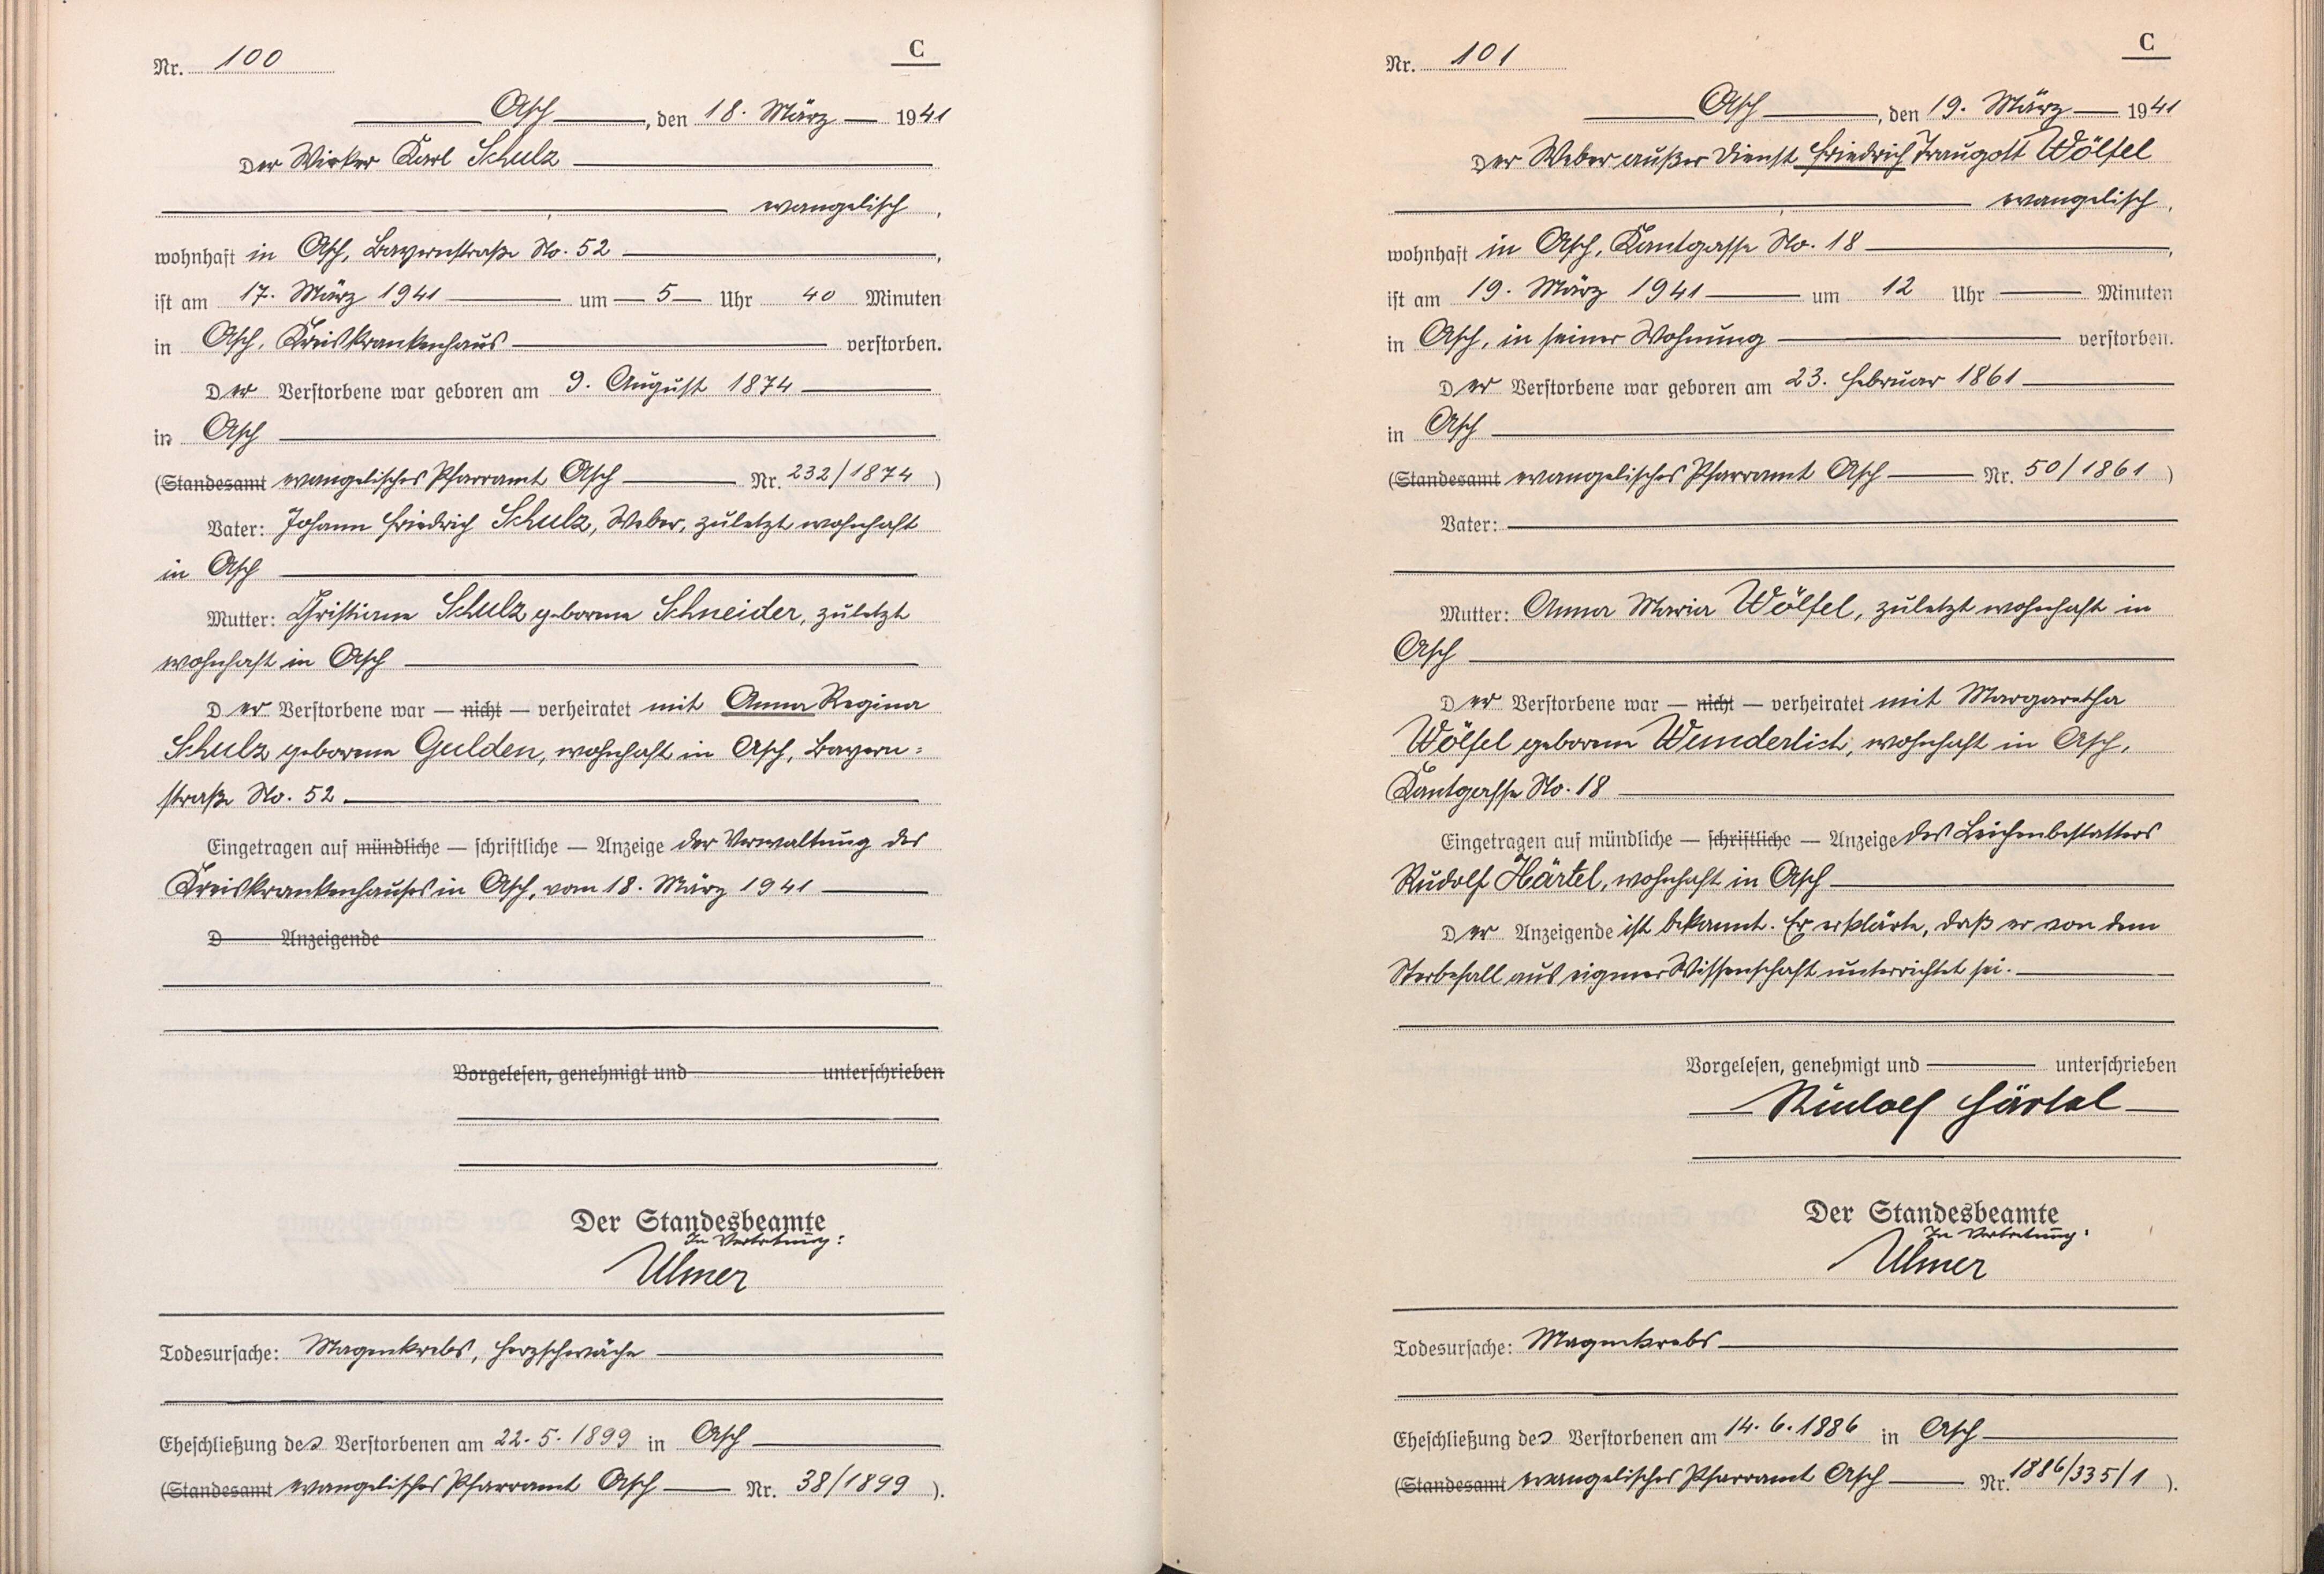 Nr. 100
C
Asch, den 18. März 1941
Der Wirker Karl Schulz
evangelisch,
wohnhaft in Asch, Bayernstraße No. 52,
ist am 17. März 1941 um 5 Uhr 40 Minuten
in Asch, Kreiskrankenhaus verstorben.
Der Verstorbene war geboren am 9. August 1874
in Asch
(Standesamt evangelisches Pfarramt Asch Nr. 232/1874)
Vater: Johann Friedrich Schulz, Weber, zuletzt wohnhaft
in Asch
Mutter: Christiane Schulz geborene Schneider, zuletzt
wohnhaft in Asch
Der Verstorbene war — nicht — verheiratet mit Anna Regina
Schulz geborene Gulden, wohnhaft in Asch, Bayern=
straße No. 52
Eingetragen auf mündliche — schriftliche — Anzeige der Verwaltung des
Kreiskrankenhauses in Asch, vom 18. März 1941
D Anzeigende
Vorgelesen, genehmigt und unterschrieben
Der Standesbeamte
In Vertretung:
Ulmer
Todesursache: Magenkrebs, Herzschwäche
Eheschließung des Verstorbenen am 22. 5. 1899 in Asch
(Standesamt evangelisches Pfarramt Asch Nr. 38/1899).
Nr. 101
C
Asch, den 19. März 1941
Der Weber außer Dienst Friedrich Traugott Wölfel
evangelisch,
wohnhaft in Asch, Kantgasse No. 18,
ist am 19. März 1941 um 12 Uhr Minuten
in Asch, in seiner Wohnung verstorben.
Der Verstorbene war geboren am 23. Februar 1861
in Asch
(Standesamt evangelisches Pfarramt Asch Nr. 50/1861)
Vater:
Mutter: Anna Maria Wölfel, zuletzt wohnhaft in
Asch
Der Verstorbene war — nicht — verheiratet mit Margaretha
Wölfel geborene Wunderlich, wohnhaft in Asch,
Kantgasse No. 18
Eingetragen auf mündliche — schriftliche — Anzeige des Leichenbestatters
Rudolf Härtel, wohnhaft in Asch
Der Anzeigende ist bekannt. Er erklärte, daß er von dem
Sterbefall aus eigner Wissenschaft unterrichtet sei.
Vorgelesen, genehmigt und unterschrieben
Rudolf Härtel
Der Standesbeamte
In Vertretung:
Ulmer
Todesursache: Magenkrebs
Eheschließung des Verstorbenen am 14. 6. 1886 in Asch
(Standesamt evangelisches Pfarramt Asch Nr. 1886/335/1).